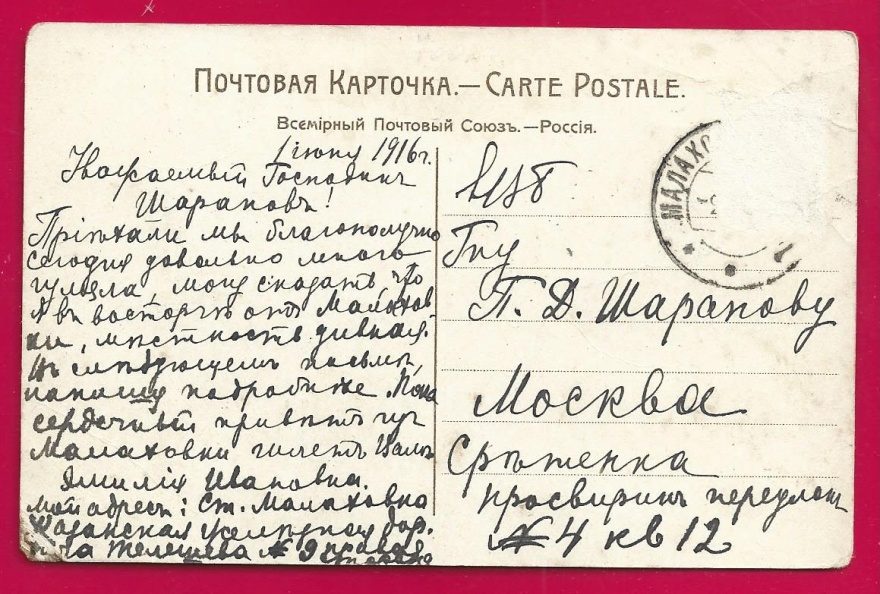 Почтовая Карточка.— Carte Postale.
Всемірный Почтовый Союзъ.—Россія.
1 іюня 1916 г.
Уважаемый Господинъ
Шараповъ!
Пріехали мы благополучно
сегодня довольно много
гуляла могу сказать что
я въ восторге отъ Малахов
ки, местность дивная.
Въ следующемъ письме,
напишу подробнее. Пока
сердечный приветъ изъ
Малаховки шлетъ Вамъ
Эмилія Ивановна.
мой адресъ: Ст. Малаховка
Казанская жел. дор.
Телешева № 9 правая
сторона
МАЛАХО
въ
Гну
П. Д. Шарапову
Москва
Сретенка
просвиринъ переулокъ
№ 4 кв 12